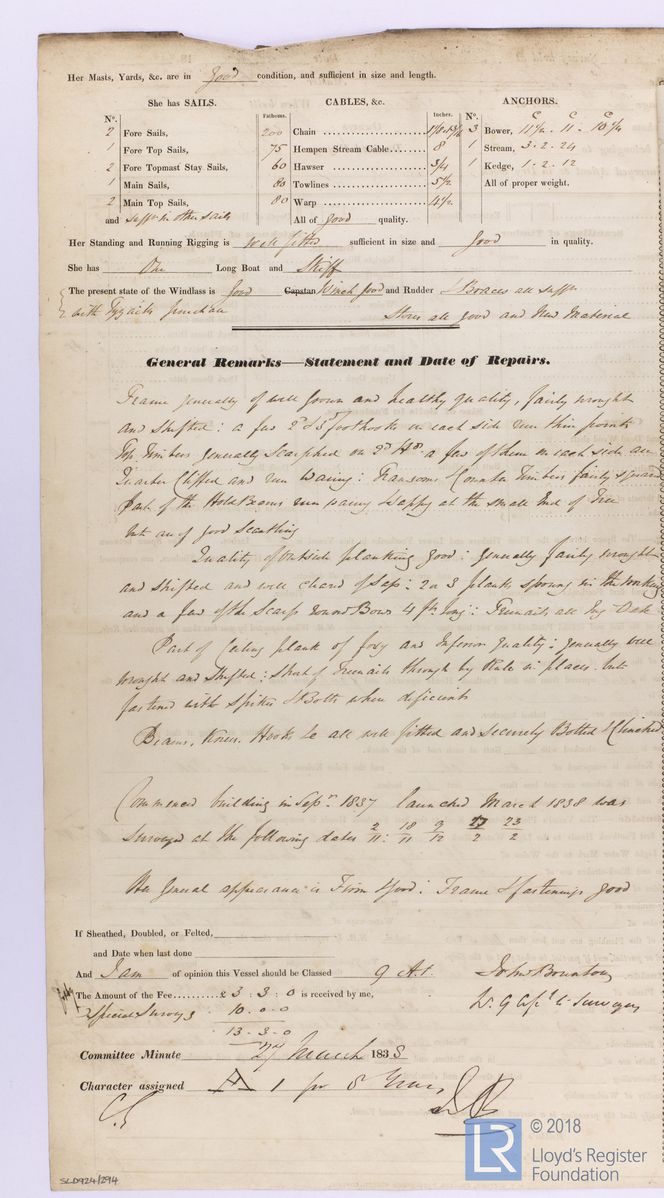 Her Masts, Yards, &c. are in good condition, and sufficient in size and length.
She has SAILS. CABLES, &c. ANCHORS.
N°. Fathoms. Inches. N°.
2 Fore Sails, 200 Chain 3 Bower, 11½ - 11 - 10¾
1 Fore Top Sails, 75 Hempen Stream Cable 8 1 Stream, 3-2-24
2 Fore Topmast Stay Sails, 60 Hawser 1 Kedge, 1-2-12
1 Main Sails, 80 Towlines 5½ All of proper weight.
2 Main Top Sails, 80 Warp 4½
and suff.t in other sails All of good quality.
Her Standing and Running Rigging is well fitted sufficient in size and good in quality.
She has One Long Boat and Skiff
The present state of the Windlass is good Capstan Winch good and Rudder & Braces all suff.t
with purchase Stores all good and New Material
General Remarks—Statement and Date of Repairs.
Frame generally of well grown and healthy quality, fairly wrought
and shifted: a few 2d & 3d foothooks on each side run thin points
Top Timbers generally Scarphed on a few of them on each side are
Quarter Cliffed and run Waney: Transoms & Counter Timbers fairly squared
Part of the Hold Beams run waney & sappy at the small End of Tree
but are of good Scantling
Quality of Outside planking good: generally fairly wrought
and shifted and well cleard of Sap: 2 or 3 planks sprung in the working
and a few of the Scarps round Bows 4 ft long: Treenails all Eng. Oak
Part of Ceiling plank of foxy and Inferior quality: generally well
wrought and shifted: short of Treenails through by Rule in places but
fastened with Spikes & Bolts when deficient
Beams, Knees, Hooks &c all well fitted and securely Bolted & Clinched
Commenced building in Sepr. 1837 launched March 1838 was
surveyed at the following dates 2/11: 18/11 9/12 17/2 23/2
Her General appearance is Firm & Good: Frame & fastenings good
If Sheathed, Doubled, or Felted,
and Date when last done
And I am of opinion this Vessel should be Classed 9 A1.
The Amount of the Fee £ 3 : 3 : 0 is received by me,
Special Survey 10-0-0
13-3-0
Committee Minute 27 March 1838
Character assigned A 1 for 8 Years
© 2018
LR Lloyd's Register
Foundation
SLD924/294